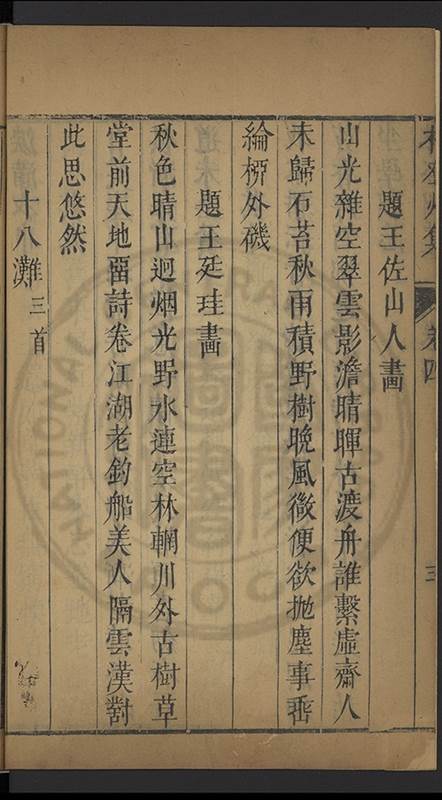 集
卷四
三
題王佐山人畫
山光雜空翠雲影澹晴暉古渡舟誰繫虛齋人
未歸石苔秋雨積野樹晚風微便欲拋塵事垂
綸枒外磯
題王廷珪畫
秋色晴山迥烟光野水連空林輞川外古樹草
堂前天地畱詩卷江湖老釣船美人隔雲漢對
此思悠然
十八灘三首